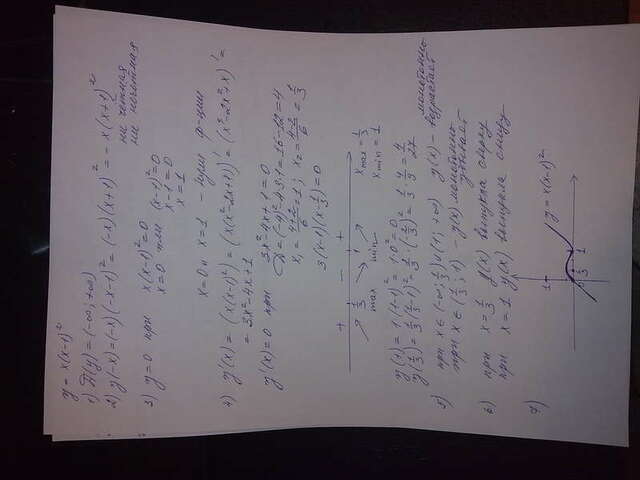 y = x(x-1)²
1) D(y) = (-∞; +∞)
2) y(-x) = (-x)(-x-1)² = (-x)(x+1)² = -x(x+1)²
ни четная
ни нечетная
3) y=0 при x(x-1)²=0
x=0 или (x-1)²=0
x-1=0
x=1
x=0 и x=1 - нули ф-ции
4) y'(x) = (x(x-1)²)' = (x(x²-2x+1))' = (x³-2x²+x)' =
= 3x²-4x+1
y'(x)=0 при 3x²-4x+1=0
D=(-4)²-4·3·1=16-12=4
x₁ = 4+2/6 = 1; x₂ = 4-2/6 = 1/3
3(x-1)(x-1/3)=0
+ - +
1/3 1
max min
x max = 1/3
x min = 1
y(1) = 1(1-1)² = 1·0² = 0
y(1/3) = 1/3(1/3-1)² = 1/3·(-2/3)² = 1/3·4/9 = 4/27
5) при x∈(-∞; 1/3)∪(1; +∞) y(x) - монотонно возрастает
при x∈(1/3; 1) - y(x) монотонно убывает
6) при x=1/3 y(x) выпукла сверху
при x=1 y(x) выпукла снизу
7)
1
1/3 1
y=x(x-1)²